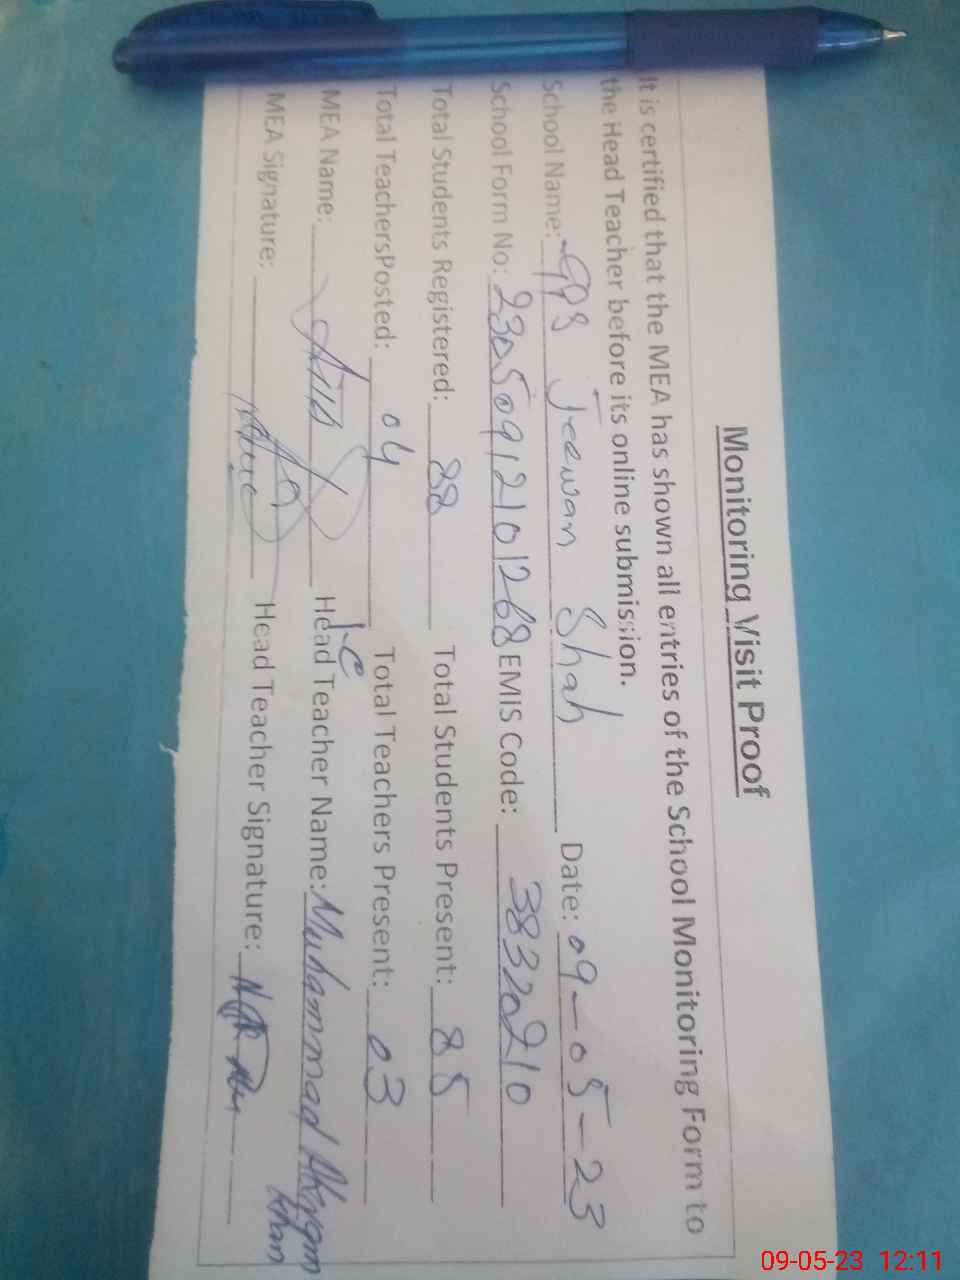 Monitoring Visit Proof
It is certified that the MEA has shown all entries of the School Monitoring Form to
the Head Teacher before its online submission.
School Name: GPS Jeewan Shah Date: 09-05-23
School Form No: 23050912101268 EMIS Code: 38320210
Total Students Registered: 88 Total Students Present: 85
Total TeachersPosted: 04 Total Teachers Present: 03
MEA Name: I-C Head Teacher Name: Muhammad Akram Khan
MEA Signature: Head Teacher Signature:
09-05-23 12:11